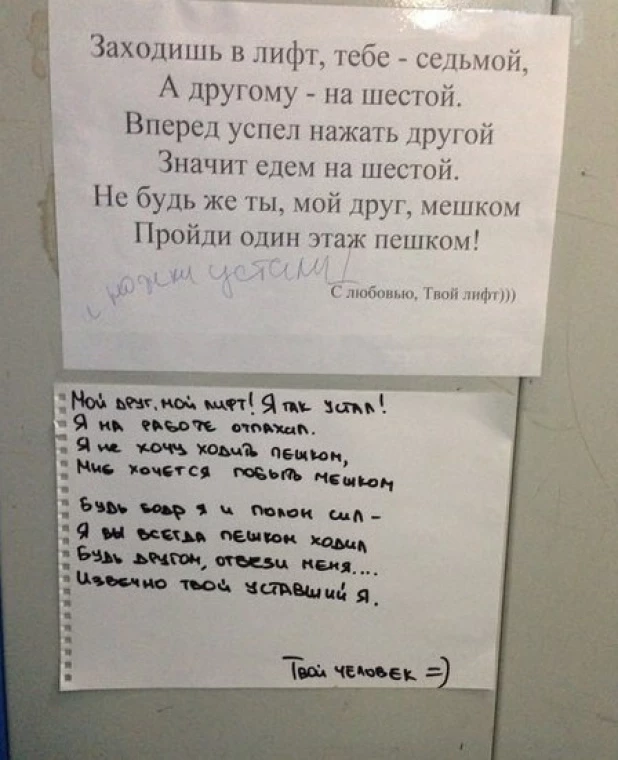 Заходишь в лифт, тебе - седьмой,
А другому - на шестой.
Вперед успел нажать другой
Значит едем на шестой.
Не будь же ты, мой друг, мешком
Пройди один этаж пешком!
и ножки устали!
С любовью, Твой лифт)))
Мой друг, мой лифт! Я так устал!
Я на работе отпахал.
Я не хочу ходить пешком,
Мне хочется побыть мешком
Будь бодр я и полон сил -
Я бы всегда пешком ходил
Будь другом, отвези меня....
Извечно твой уставший я.
Твой человек =)